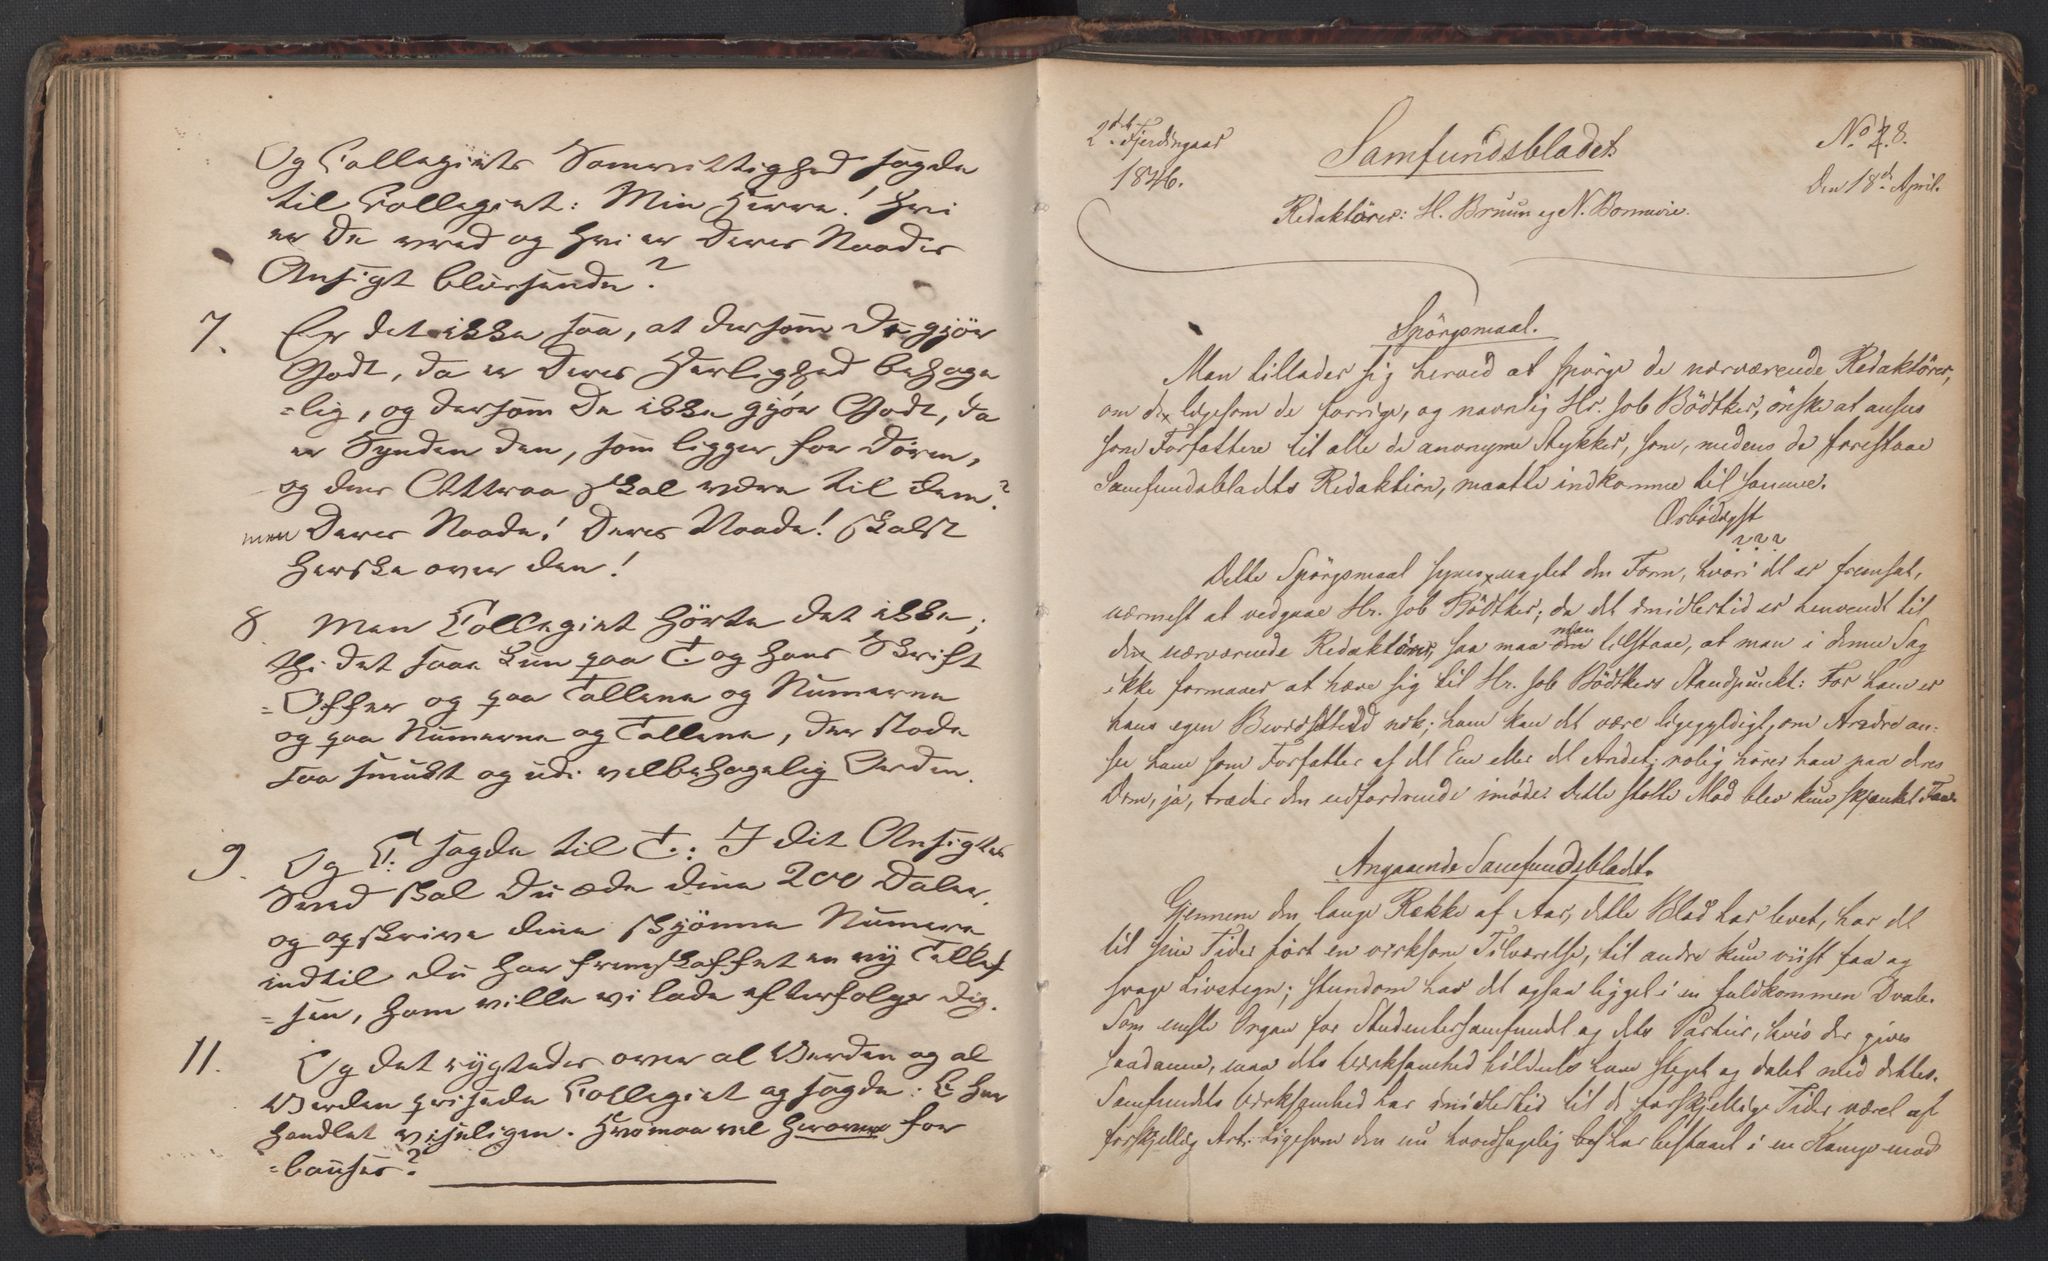 Og Collegiets Samvittighed sagde
til Collegiet: Min Herre! Hvi
er De vred og hvi er Deres Naades
Ansigt blussende?
7. Er det ikke saa, at dersom De gjør
Godt, da er Deres Herlighed behage
=lig, og dersom De ikke gjör Godt, da
er Synden den, som ligger for Døren,
og dens Attraa skal være til dem?
men Deres Naade! Deres Naade! skalst
herske over den!
8 Men Collegiet hörte det ikke;
thi det saae kun paa C. og hans Skrift
=Offer og paa Tallene og Numerne
og paa Numerne og Tallene, der stode
saa smukt og udi velbehagelig Orden.
9. Og C: sagde til C.: I dit Ansigtes
Sved skal Du æde dine 200 Daler.
og opskrive dine skjønne Numere
indtil du har fremskaffet en ny
=sen, ham ville vi lade efterfølge dig.
11. Og det rygtedes over al Verden og al
Verden prisede Collegiet og sagde: E har
handlet viseligen. Hvo maa vel herover for
=bauses?
2det Fjerdingaar
1846.
Samfundsbladet
No 8.
Den 18de April.
Redaktörer: H. Bruun og N. Bonnevie.
Spörgsmaal.
Man tillader sig herved at spörge de nærværende Redaktörer,
om de ligesom de forrige, og navnlig Hr. Job Bödtker, önske at ansees
som Forfattere til alle de anonyme Stykker, som, medens de forestaae
Samfundsbladets Redaktion, maatte indkomme til samme.
Ærbödigst
? ? ?
Dette Spörgsmaal synes uagtet den Form, hvori det er fremsat,
nærmest at vedgaae Hr. Job Bödtker; da det imidlertid er henvendt til
den nærværende Redaktion, saa maa man tilstaae, at man i denne Sag
ikke formaaer at hæve sig til Hr. Job Bödtkers Standpunkt: For ham er
hans egen Bevidsthed nok; ham kan det være ligegyldigt, om Andre an-
see ham som Forfatter af det Ene eller det Andet; rolig hører han paa deres
Dom, ja, træder den udfordrende imöde. Dette stolte Mod blev kun skjænket Faa.
Angaaende Samfundsbladet.
Gjennem den lange Række af Aar, dette Blad har levet, har det
til sine Tider fört en virksom Tilværelse, til andre kun viist faa og
svage Livstegn; stundom har det ogsaa ligget i en fuldkommen Dvale.
Som eneste Organ for Studentersamfundet og dets Partier, hvis der gives
saadanne, maa dets Virksomhed have steget og dalet med dettes.
Samfundets Virksomhed har imidlertid til de forskjellige Tider været af
forskjellig Art. Ligesom den nu hovedsagelig har bestaaet i en Kamp mod